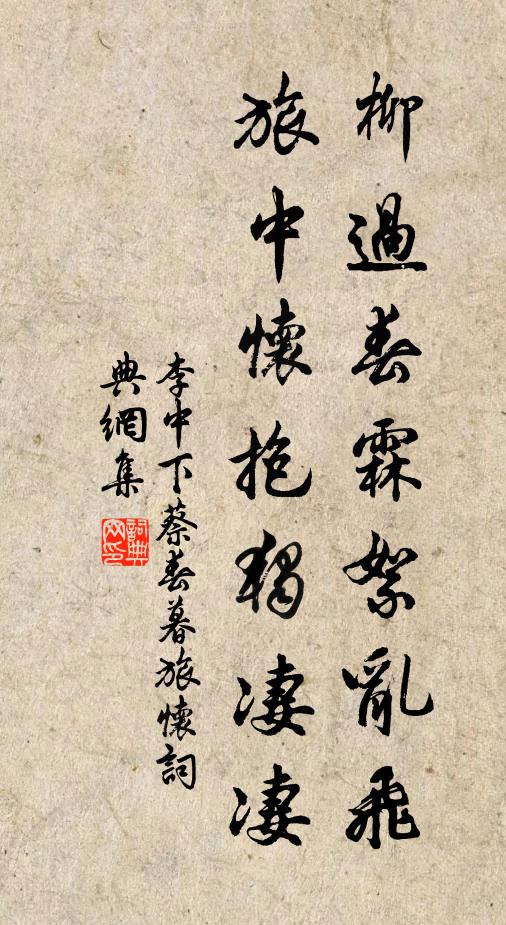 柳過春霖絮亂飛
旅中懷抱獨淒淒
李中下蔡春暮旅懷詞
典網集
詞典
网印